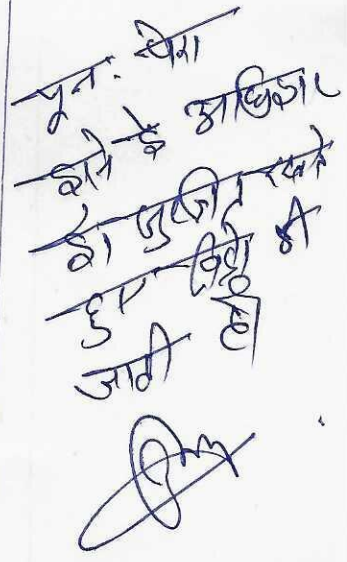 पुनः पेश
होने के अधिकार
को सुरक्षित रखते
हुए विड्रो की
जाती है।